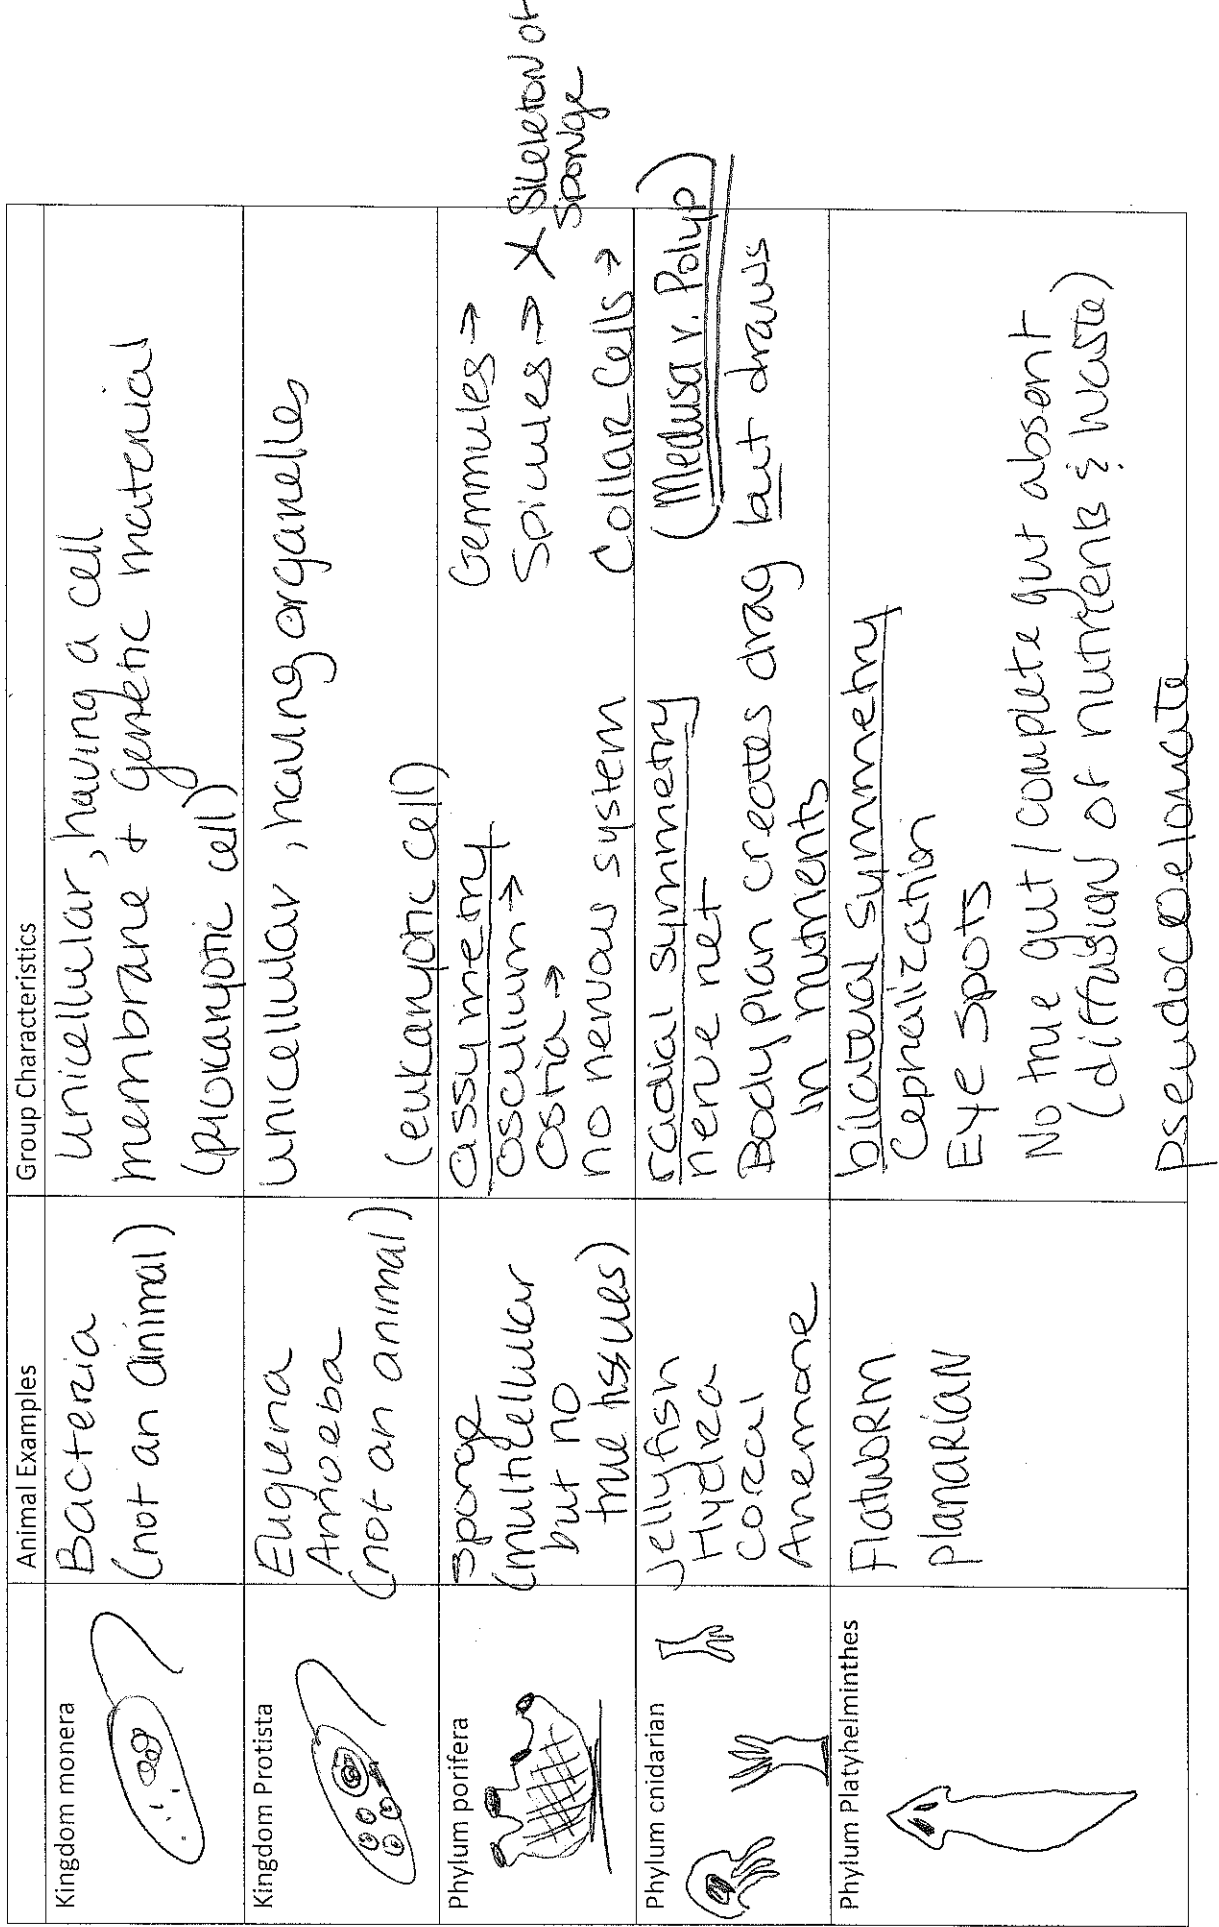 Animal Examples
Group Characteristics
Kingdom monera
Bacteria
(not an animal)
unicellular, having a cell
membrane + genetic material
(prokaryotic cell)
Kingdom Protista
Euglena
Amoeba
(not an animal)
unicellular, having organelles
(eukaryotic cell)
Phylum porifera
sponge
(multicellular
but no
true tissues)
assymetry
osculum →
ostia →
no nervous system
Gemmules →
Spicules → * Skeleton of
sponge
Collar Cells →
Phylum cnidarian
Jellyfish
Hydra
Coral
Anemone
radial symmetry
nerve net
(Medusa v. Polyp)
Body plan creates drag but draws
in nutrients
Phylum Platyhelminthes
Flatworm
planarian
bilateral symmetry
Cephalization
Eye spots
No true gut / complete gut absent
(diffusion of nutrients & waste)